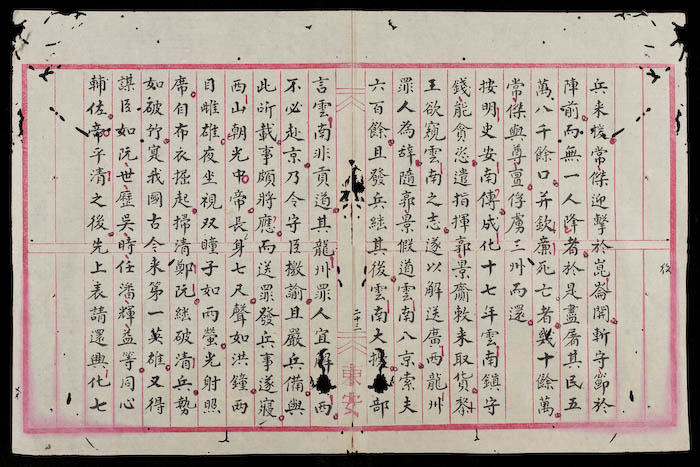 兵来援常傑迎擊於崑崙関斬守節於
陣前而無一人降者於是盡屠其民五
萬八千餘口并欽廉死亡者幾十餘萬
常傑與尊亶俘虜三州而還
按明史安南傳成化十七年雲南鎮守
錢能貪恣遣指揮郭景齎敕来取貨黎
王欲窺雲南之志遂以解送廣西龍州
罪人為辞隨郭景假道雲南入京索夫
六百餘且發兵継其後雲南大擾部
二十三
東安
言雲南非貢道其龍州罪人宜解西
不必赴京乃令守臣檄諭且嚴兵備與
此所載事頗將應而送罪發兵事遂寝
西山朝光中帝長身七尺聲如洪鐘両
目雌雄夜坐視双瞳子如両螢光射照
席自布衣掘起掃清鄭阮継破清兵勢
如破竹寔我國古今来第一英雄又得
謀臣如阮世歴吳時任潘輝益等同心
輔佐常平清之後先上表請還興化七